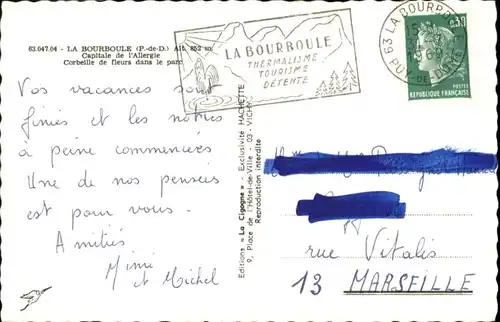 63.047.04 - LA BOURBOULE (P.-de-D.) Alt. 852 m
Capitale de l'Allergie
Corbeille de fleurs dans le parc
LA BOURBOULE
THERMALISME
TOURISME
DÉTENTE
63 LA BOURBOULE
PUY-DE-DOME
0,30
POSTES
REPUBLIQUE FRANÇAISE
Vos vacances sont
finies et les nôtres
à peine commencées
Une de nos pensées
est pour vous.
Amitiés
Mimi
et Michel
Editions "La Cigogne" - Exclusivité HACHETTE
9, Place de l'Hôtel-de-Ville - 03 - VICHY
Reproduction interdite
rue Vitalis
13 MARSEILLE